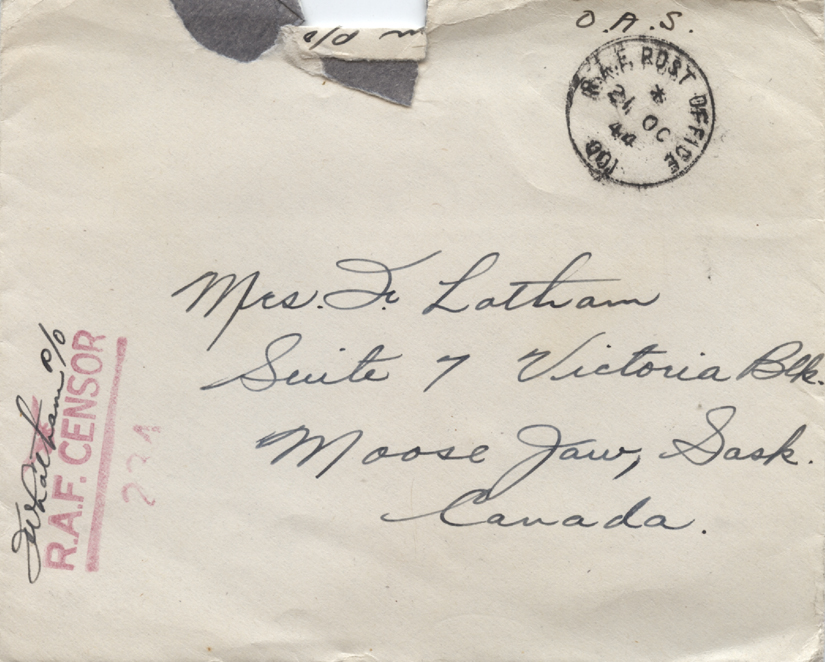 O.A.S.
R.A.F. POST OFFICE
*
24 OC
44
001
Mrs. F. Latham
Suite 7 Victoria Blk.
Moose Jaw, Sask.
Canada.
Latham P/O
R.A.F. CENSOR
234